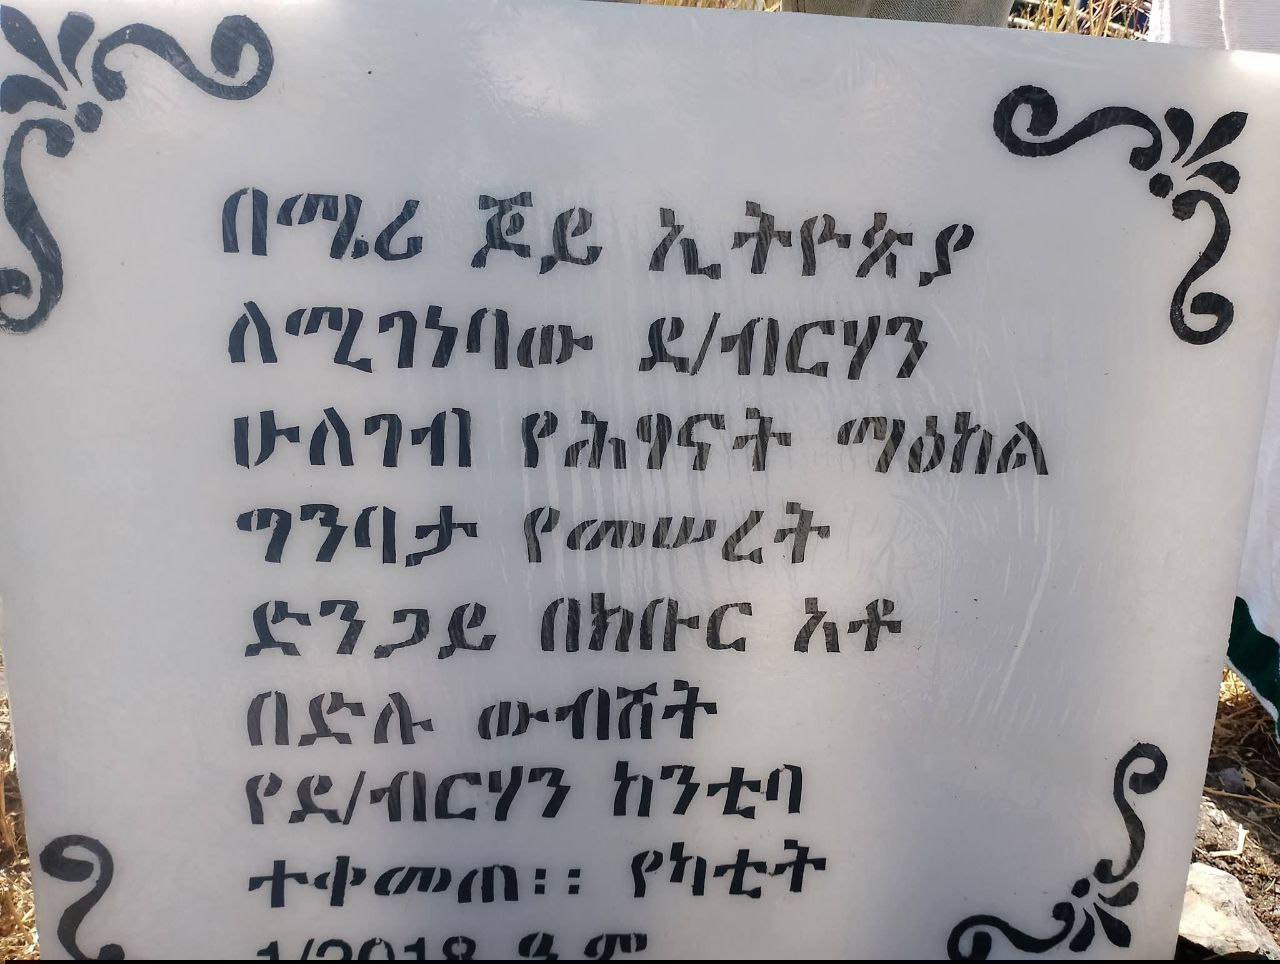 በሜሪ ጆይ ኢትዮጵያ
ለሚገነባው ደ/ብርሃን
ሁለገብ የሕፃናት ማዕከል
ግንባታ የመሠረት
ድንጋይ በክቡር አቶ
በድሉ ውብሸት
የደ/ብርሃን ከንቲባ
ተቀመጠ፡፡ የካቲት
1/2018 ዓ.ም